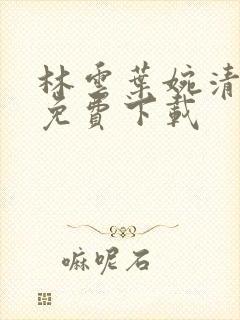 林雲葉婉清
免費下載
嘛呢石